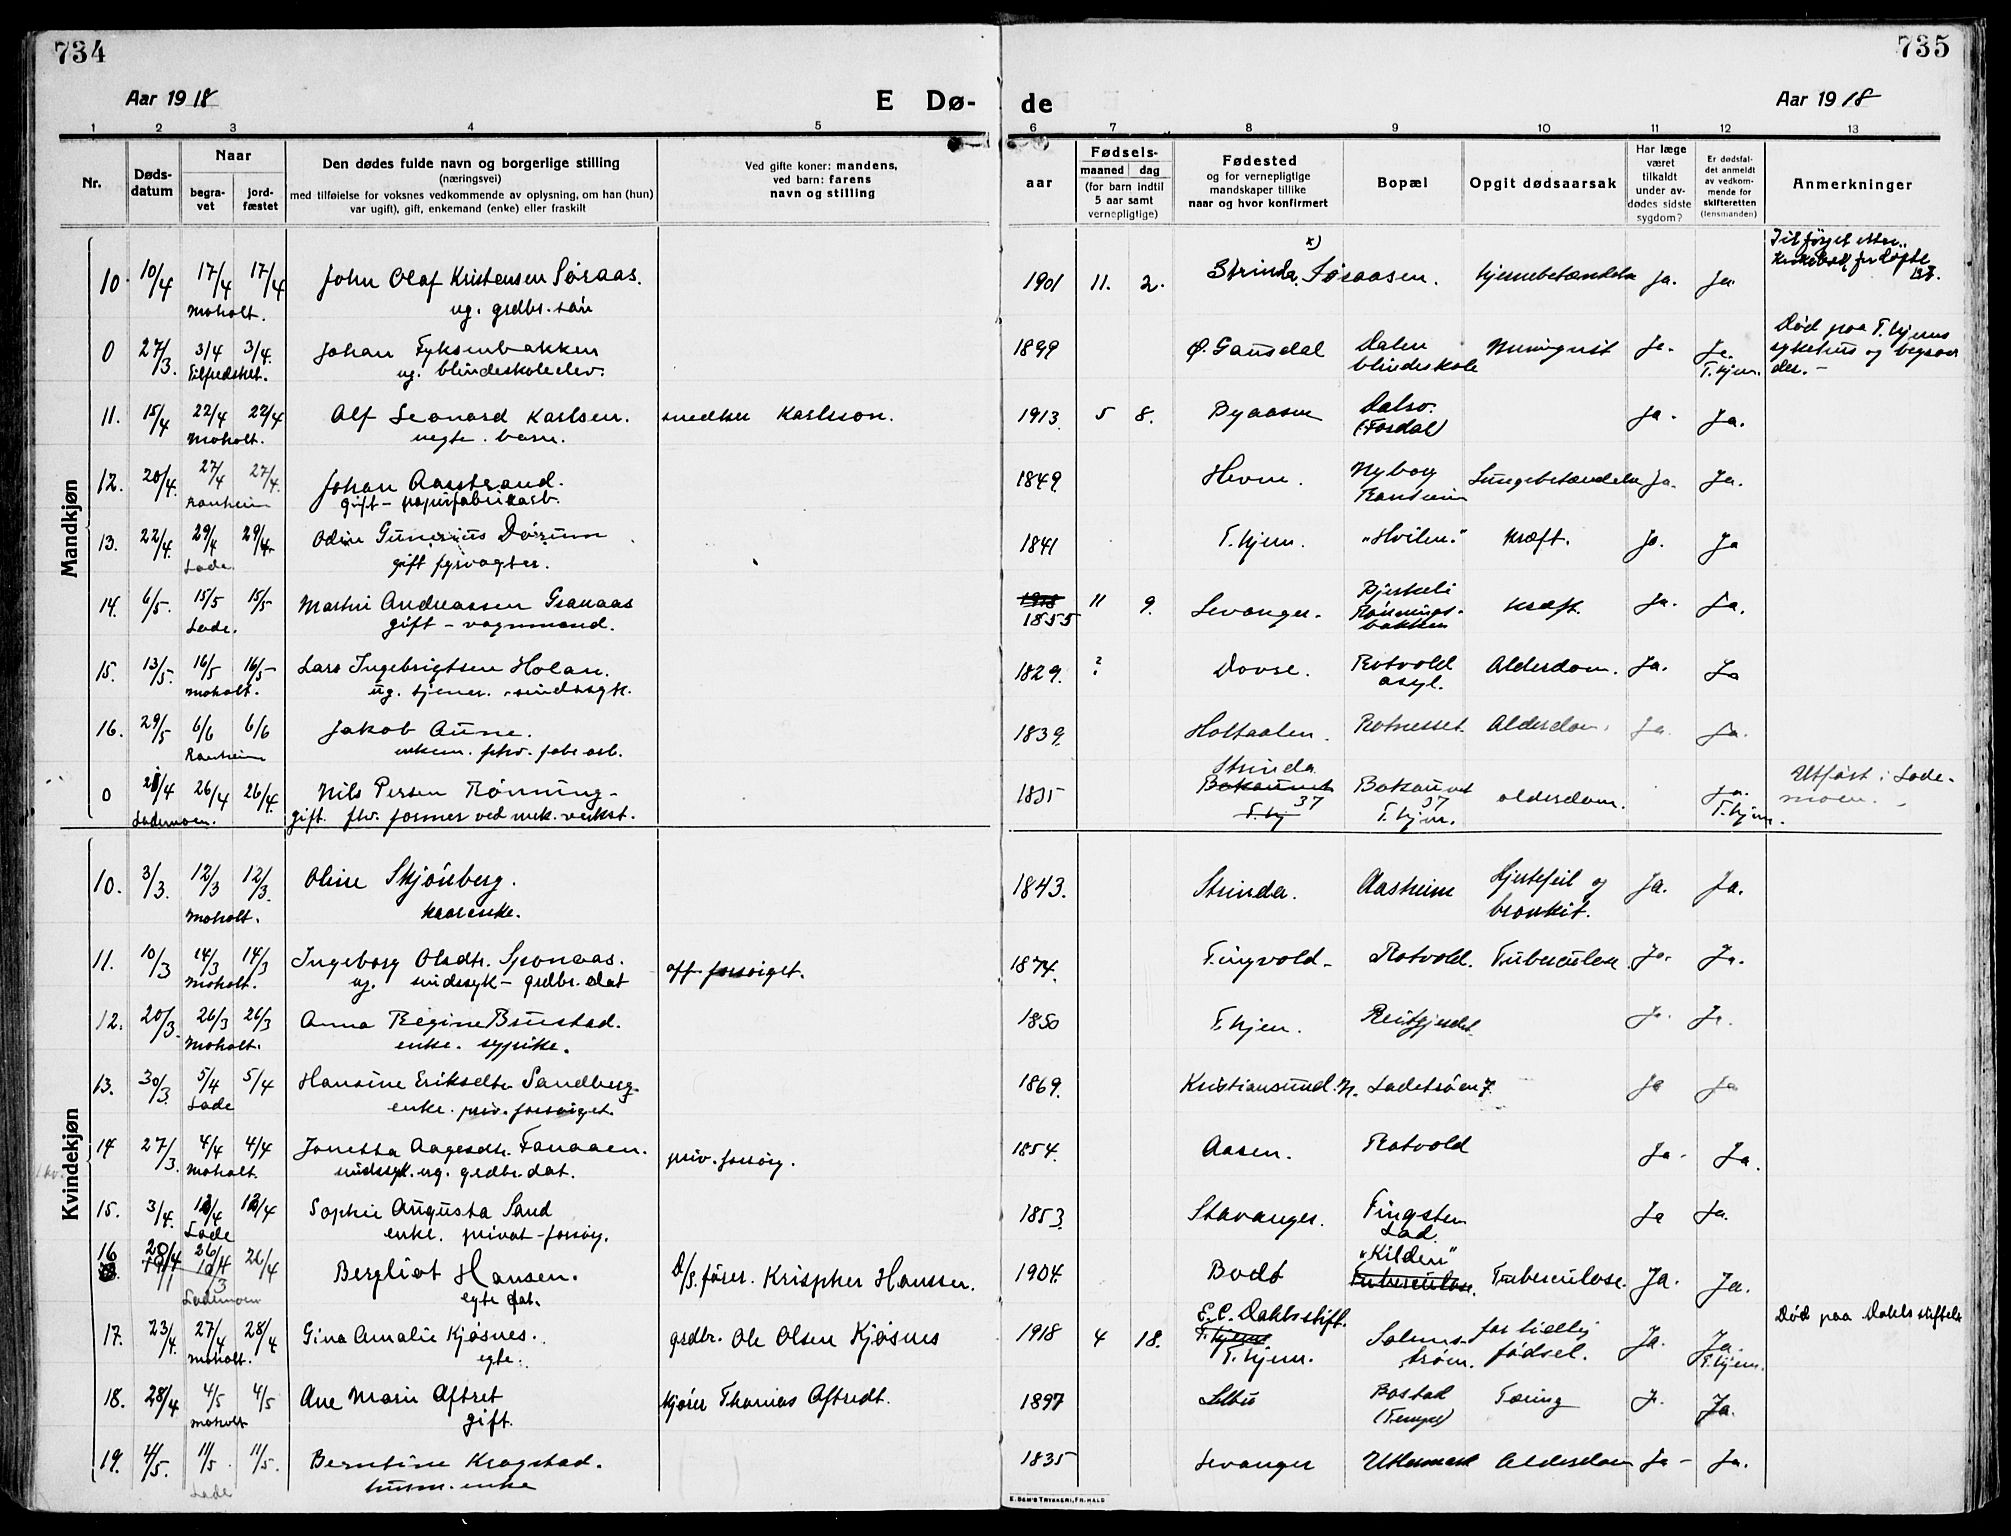 734
735
Aar 1918
E Dø-
de
Aar 1918
1 2 3 4 5
6 7 8 9 10 11 12 13
Nr.
Døds-
datum
Naar
begra-
vet
jord-
fæstet
Den dødes fulde navn og borgerlige stilling
(næringsvei)
med tilføielse for voksnes vedkommende av oplysning, om han (hun)
var ugift), gift, enkemand (enke) eller fraskilt
Ved gifte koner: mandens,
ved barn: farens
navn og stilling
aar
Fødsels-
maaned dag
(for barn indtil
5 aar samt
vernepligtige)
Fødested
og for vernepligtige
mandskaper tillike
naar og hvor konfirmert
Bopæl
Opgit dødsaarsak
Har læge
været
tilkaldt
under av-
dødes sidste
sygdom?
Er dødsfal-
det anmeldt
av vedkom-
mende for
skifteretten
(lensmanden)
Anmerkninger
Mandkjøn
10. 10/4 17/4 17/4 John Olaf Kristensen Søraas. 1901 11. 2. Strinda, Søraasen. Hjernebetændelse Ja. Ja.
x)
Moholt. ug. grdbr. søn
0 27/3. 3/4 3/4. Johan Fyksenbakken 1899 Ø. Gausdal Dalen Meningnit Ja. Ja.
Tilfredshet. ug. blindeskoleelev. blindeskole T.hjem.
Død paa T.hjems
sykehus og begraves
der. -
11. 15/4 22/4 22/4 Alf Leonard Karlsen. snedker Karlsson. 1913 5 8. Byaasen Dalsv. Ja. Ja.
Moholt. uegte. barn. (Fosdal)
12. 20/4. 27/4 27/4. Johan Aastrand. 1849. Hevne. Nyborg Lungebetændelse Ja. Ja.
Ranheim gift - papirfabrikarb. Ranheim
13. 22/4. 29/4 29/4. Odin Gunerius Dørum 1841 T.hjem. "Hvilen." Kræft. Ja. Ja
Lade. gift fyrvogter.
14. 6/5. 15/5 15/5 Martin Andreassen Granaas 1918 11 9. Levanger. Bjerkeli Kræft. Ja. Ja.
Lade. gift - vognmand. 1855 Rønnings-
bakken
15. 13/5. 16/5 16/5 Lars Ingebrigtsen Holan. 1829. ? Dovre. Rotvold Alderdom. Ja. Ja
Moholt. ug. tjener. sindssyk. asyl.
16. 29/5 6/6 6/6 Jakob Aune. 1839. Holtaalen. Rotnesset Alderdom. Ja. Ja.
Ranheim enkem. fhv. fabr arb.
0 21/4 26/4 26/4. Nils Persen Rønning- 1835 Strinda Bakaunet alderdom. Ja.
Bakaunet 37
Lademoen. gift. fhv. former ved mek. verkst. T.hj 37 T.hjem. T.hjem.
Utført i Lade-
moen. -
Kvindekjøn
10. 3/3. 12/3 12/3. Oline Skjønberg. 1843. Strinda. Aasheim Hjertefeil og Ja. Ja.
Moholt. kaarenke. bronkit.
11. 10/3 14/3 14/3 Ingeborg Olsdtr. Gronaas. off. forsørget. 1874. Tingvold- Rotvold. Tuberculose Ja. Ja.
Moholt. ug. sindssyk - grdbr. dat
12. 20/3. 26/3 26/3 Anna Regine Brustad. 1850 T.hjem. Reitgjerdet Ja. Ja.
Moholt. enke. sypike.
13. 30/3. 5/4 5/4 Hansine Eriksdtr Sandberg 1869. Kristiansund. N. Ladetrøen 7. Ja Ja
Lade enke. priv. forsørget.
14 27/3. 4/4 4/4 Jonetta Aagesdtr. Fanaaen. priv. forsørg. 1854. Aasen. Rotvold Ja. Ja.
Moholt. sindssyk. ug. grdbr. dat.
15. 3/4. 12/4 12/4 Sophie Augusta Sand 1853. Stavanger. Tingsten Ja Ja.
Lade enke. privat-forsørg. Lad.
16 20/4 26/4 26/4 Bergliot Hansen. D/S. fører. Krispher Hanssen. 1904. Bodø "Kilden" Tuberculose. Ja. Ja.
Lademoen egte dat. Tuberculose.
17. 23/4. 27/4 28/4 Gina Amalie Kjøsnes. grdbr. Ole Olsen Kjøsnes 1918 4 18. E.C. Dahls stift. Salems- for tidlig Ja. Ja.
Moholt. egte. T.hjem T.hjem. strøm. fødsel. T.hjem.
Død paa Dahls stiftelse
18. 28/4 4/5 4/5 Ane Marie Aftret kjører Thomas Aftredt. 1897 Selbu Bostad Tæring Ja. Ja.
Moholt gift. (Tempe)
19. 4/5. 11/5. 11/5. Berntine Krogstad. 1835 Levanger Alderdom Ja - Ja.
Lade husm. enke
E. SEM'S TRYKKERI, FR.HALD